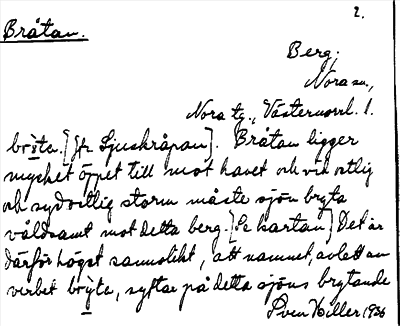 2.
Bråtan.
Berg.
Nora sn.,
Nora tg., Västernorrl. l.
bröta. [Jfr Ljuskråpan]. Bråtan ligger
mycket öppet till mot havet och vid ostlig
och sydostlig storm måste sjön bryta
våldsamt mot detta berg. [Se kartan] Det är
därför högst sannolikt, att namnet, avlett av
verbet bröta, syftar på detta sjöns brytande
Sven Hiller 1936